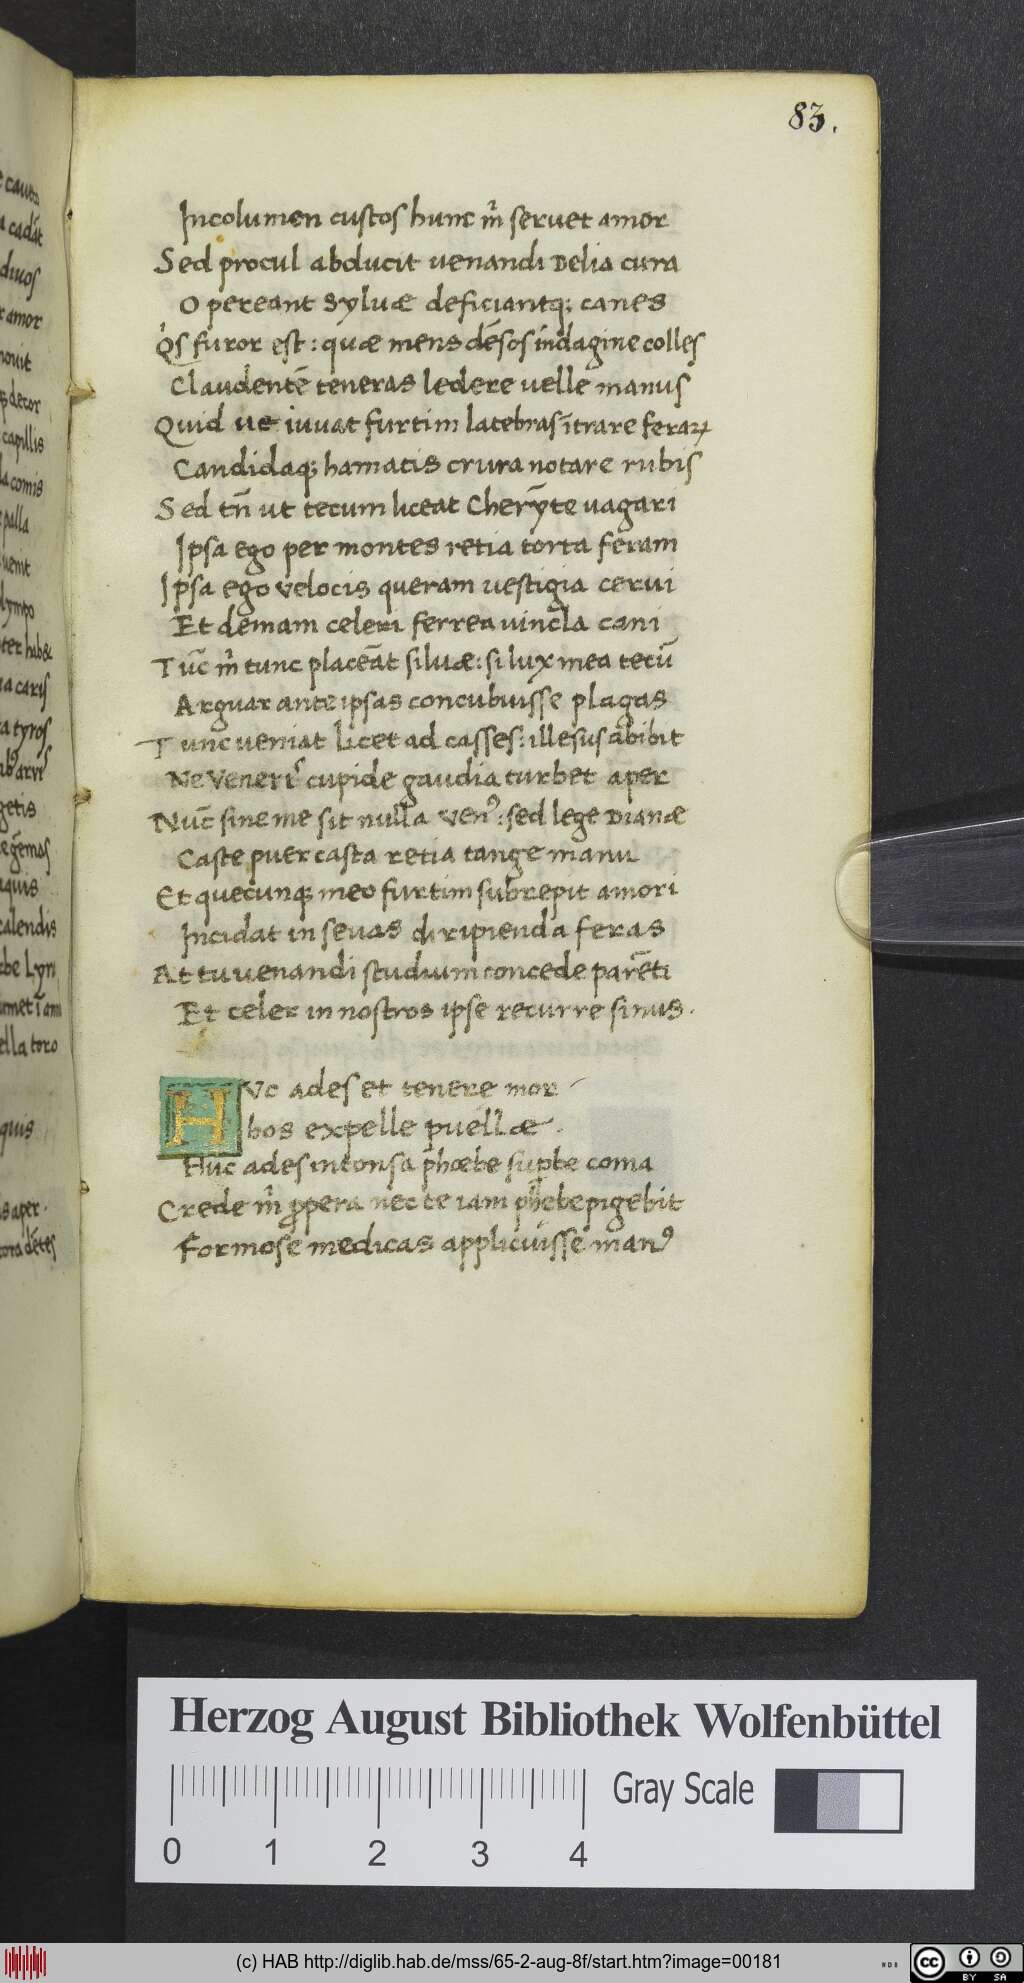 e cauto
a cadāt
diuos
r amor
nouit
decor
capillis
la comis
palla
uenit
lympo
ter hab&
ia caris
a tyros
getis
aquis
calendis
ella toro
quis
s aper.
tora dētes
83.
Incolumen custos hunc m̄ seruet amor
Sed procul abducit uenandi Delia cura
O pereant syluæ deficiantq; canes
Qͥs furor est: quæ mens dēsos īndagine colles
Claudentē teneras ledere uelle manus
Quid ue iuuat furtim latebras ītrare feraꝝ
Candidaq; hamatis crura notare rubis
Sed tn̄ ut tecum liceat Cherȳte uagari
Ipsa ego per montes retia torta feram
Ipsa ego velocis queram uestigia cerui
Et demam celeri ferrea uincla cani
Tūc m̄ tunc placeāt siluæ: si lux mea tecū
Arguar ante ipsas concubuisse plagas
Tunc ueniat licet ad casses: illesus abibit
Ne Veneris cupide gaudia turbet aper
Nūc sine me sit nulla venꝰ: sed lege Dianæ
Caste puer casta retia tange manu
Et quecunq; meo furtim subrepit amori
Incidat in seuas diripienda feras
At tu uenandi studium concede parēti
Et celer in nostros ipse recurre sinus.
HVc ades et tenere mor-
bos expelle puellæ.
Huc ades intonsa phœbe supbe coma
Crede m̄ ꝓpera nec te iam phebe pigebit
Formose medicas applicuisse manꝰ
Herzog August Bibliothek Wolfenbüttel
Gray Scale
0 1 2 3 4
(c) HAB http://diglib.hab.de/mss/65-2-aug-8f/start.htm?image=00181
cc BY SA